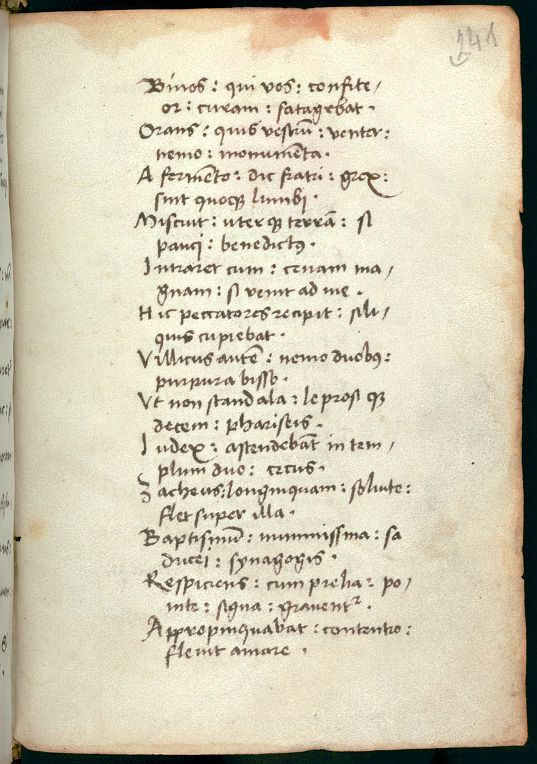 241
Binos : qui vos : confite-
or : curam : satagebat .
Orans : quis vestrū : venter :
nemo : monumēta .
A fermēto : dic fratri : grex :
sint quoqȝ lumbi .
Miscuit : uterqȝ terrā : si
pauci : benedictꝰ .
Intraret cum : cenam ma-
gnam : si venit ad me .
Hic peccatores recipit : sili-
quis cupiebat .
Villicus autē : nemo duobꝰ :
purpura bisso .
Vt non standala : leprosi qȝ
decem : phariseis .
Iudex : astendebāt in tem-
plum duo : cecus .
Zacheus : longinquam : soluite :
flet super illa .
Baptismū : nummissma : sa
ducei : synagogis .
Respiciens : cum prelia : po-
nite : signa : gravent² .
Appropinquavat : contentio :
flevit amare .